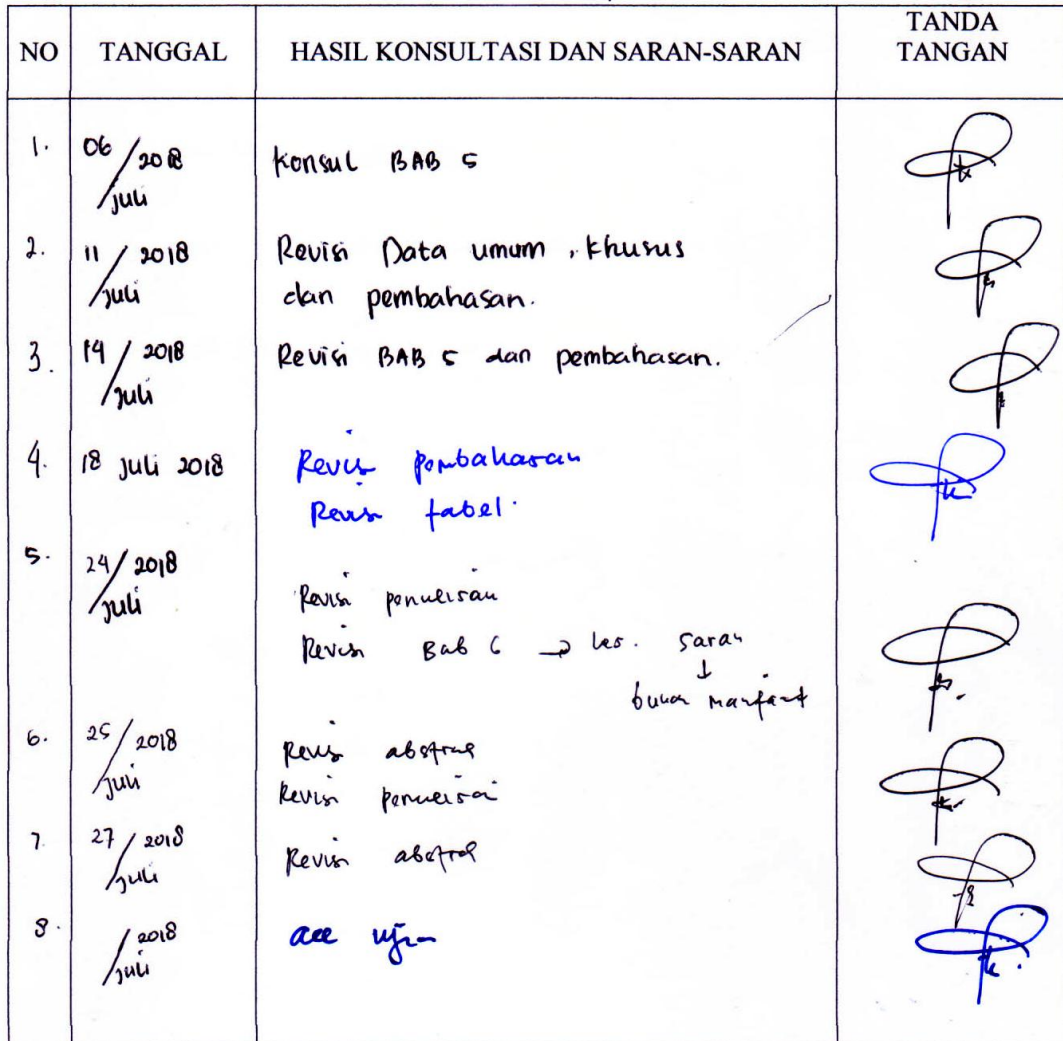 NO TANGGAL HASIL KONSULTASI DAN SARAN-SARAN TANDA TANGAN
1. 06/2018 Konsul BAB 5
/juli
2. 11/2018 Revisi Data umum, khusus
/juli dan pembahasan.
3. 14/2018 Revisi BAB 5 dan pembahasan.
/juli
4. 18 juli 2018 Revisi pembahasan
Revisi tabel.
5. 24/2018
/juli Revisi penulisan
Revisi Bab 6 → kes. saran
↓
bukan manfaat
6. 25/2018 Revisi abstrak
/juli Revisi penulisan
7. 27/2018 Revisi abstrak
/juli
8. /2018 acc ujian
/juli